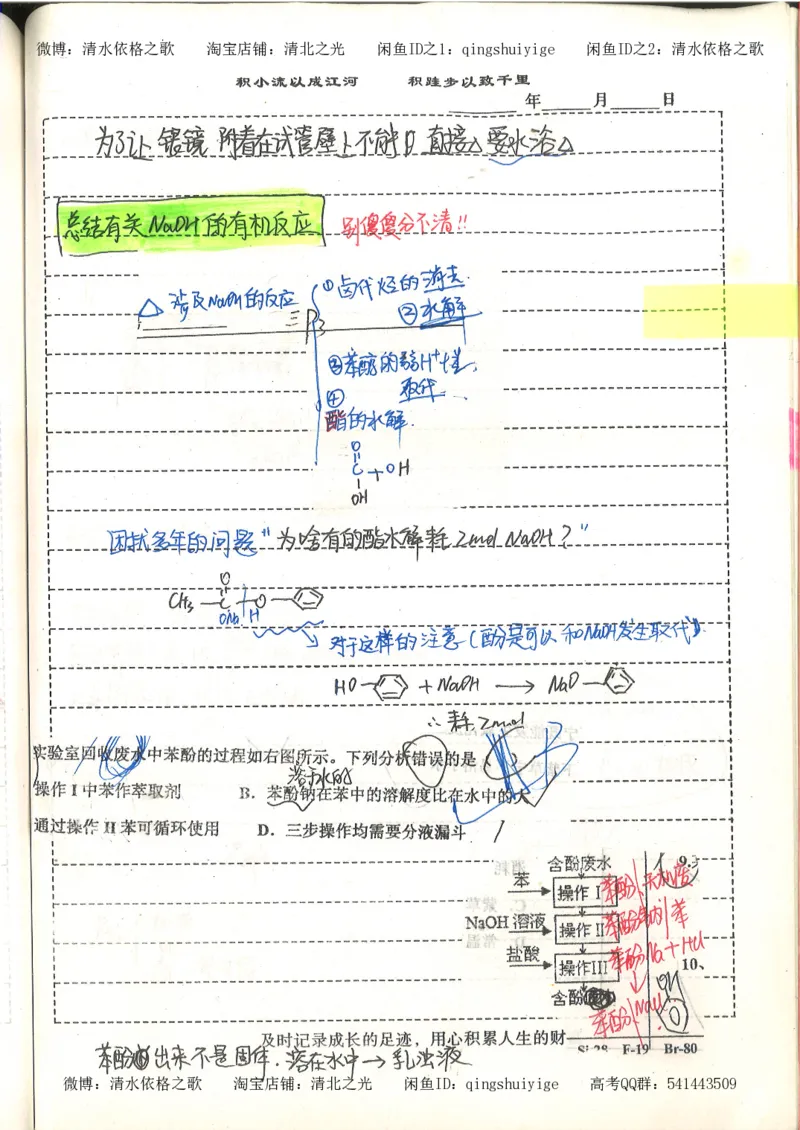 微博：清水依格之歌 淘宝店铺：清北之光 闲鱼ID之1：qingshuiyige 闲鱼ID之2：清水依格之歌
积小流以成江河 积跬步以致千里
年 月 日
为了让 银镜 附着在试管壁上不能 直接△ 要水浴△
总结有关NaOH的有机反应 别傻傻分不清!!
△ 涉及NaOH的反应
① 卤代烃的消去
② 水解
③ 苯酚的弱H⁺性
取代
④
酯的水解
O
C + OH
OH
困扰多年的问题 "为啥有的酯水解耗 2mol NaOH？"
O
CH₃ — C — O —
ONa H
对于这样的注意（酚是可以和NaOH发生取代）
HO— + NaOH → NaO—
∴ 耗 2mol
实验室回收废水中苯酚的过程如右图所示。下列分析错误的是
溶于水的
操作 I 中苯作萃取剂 B．苯酚钠在苯中的溶解度比在水中的大
通过操作 II 苯可循环使用 D．三步操作均需要分液漏斗
含酚废水 9.
苯 操作 I 苯酚
NaOH 溶液 操作 II 苯酚钠 苯
盐酸 操作III 苯酚Na+HCl 10、
含酚
苯酚 NaCl
及时记录成长的足迹，用心积累人生的财
F-19 Br-80
苯酚 出来不是固体．溶在水中→乳浊液
微博：清水依格之歌 淘宝店铺：清北之光 闲鱼ID：qingshuiyige 高考QQ群：541443509